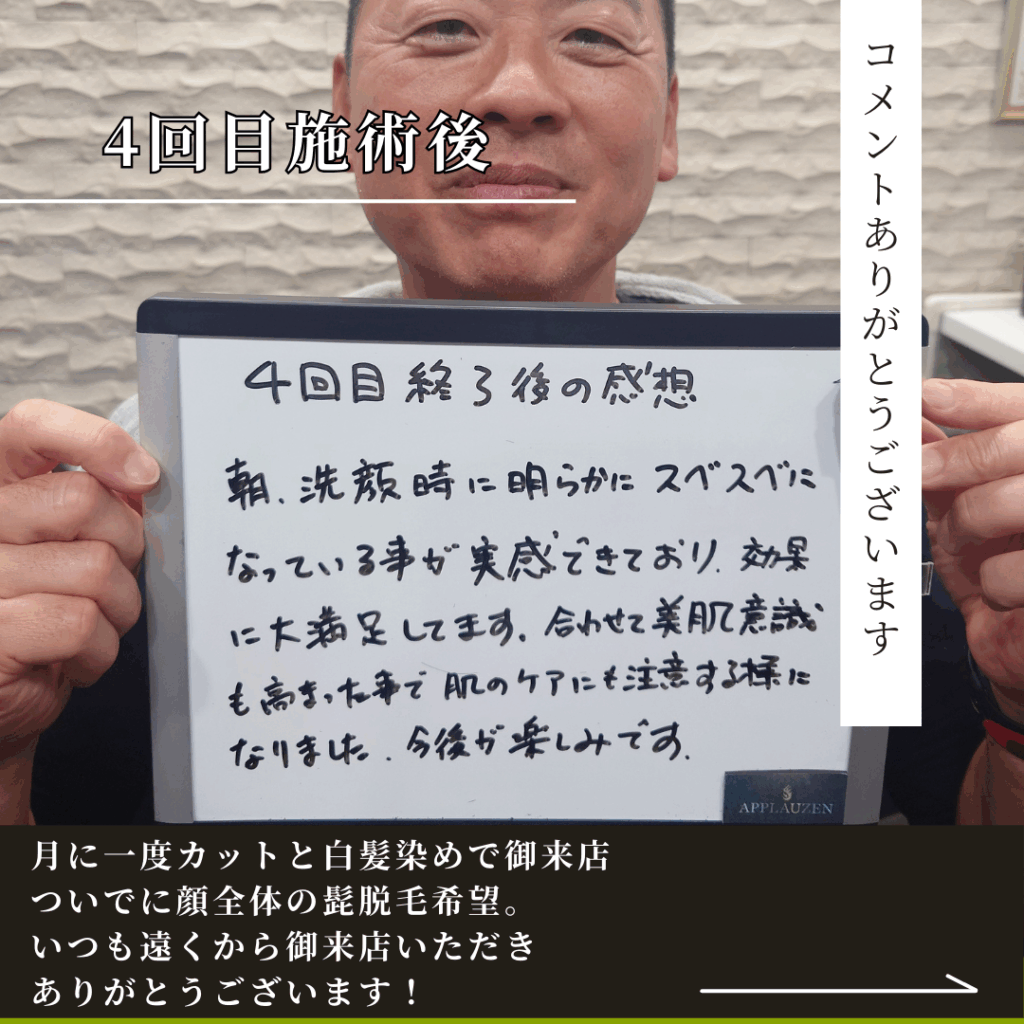 4回目施術後
コメントありがとうございます
4回目終了後の感想
朝、洗顔時に明らかにスベスベに
なっている事が実感できており、効果
に大満足してます。合わせて美肌意識
も高まった事で肌のケアにも注意する様に
なりました。今後が楽しみです。
APPLAUZEN
月に一度カットと白髪染めで御来店
ついでに顔全体の髭脱毛希望。
いつも遠くから御来店いただき
ありがとうございます！